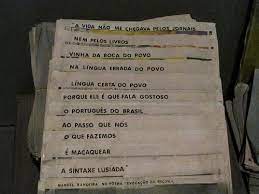 A VIDA NÃO ME CHEGAVA PELOS JORNAIS
NEM PELOS LIVROS
VINHA DA BOCA DO POVO
NA LÍNGUA ERRADA DO POVO
LÍNGUA CERTA DO POVO
PORQUE ELE É QUE FALA GOSTOSO
O PORTUGUÊS DO BRASIL
AO PASSO QUE NÓS
O QUE FAZEMOS
É MACAQUEAR
A SINTAXE LUSÍADA
MANUEL BANDEIRA NO POEMA "EVOCAÇÃO DO RECIFE"